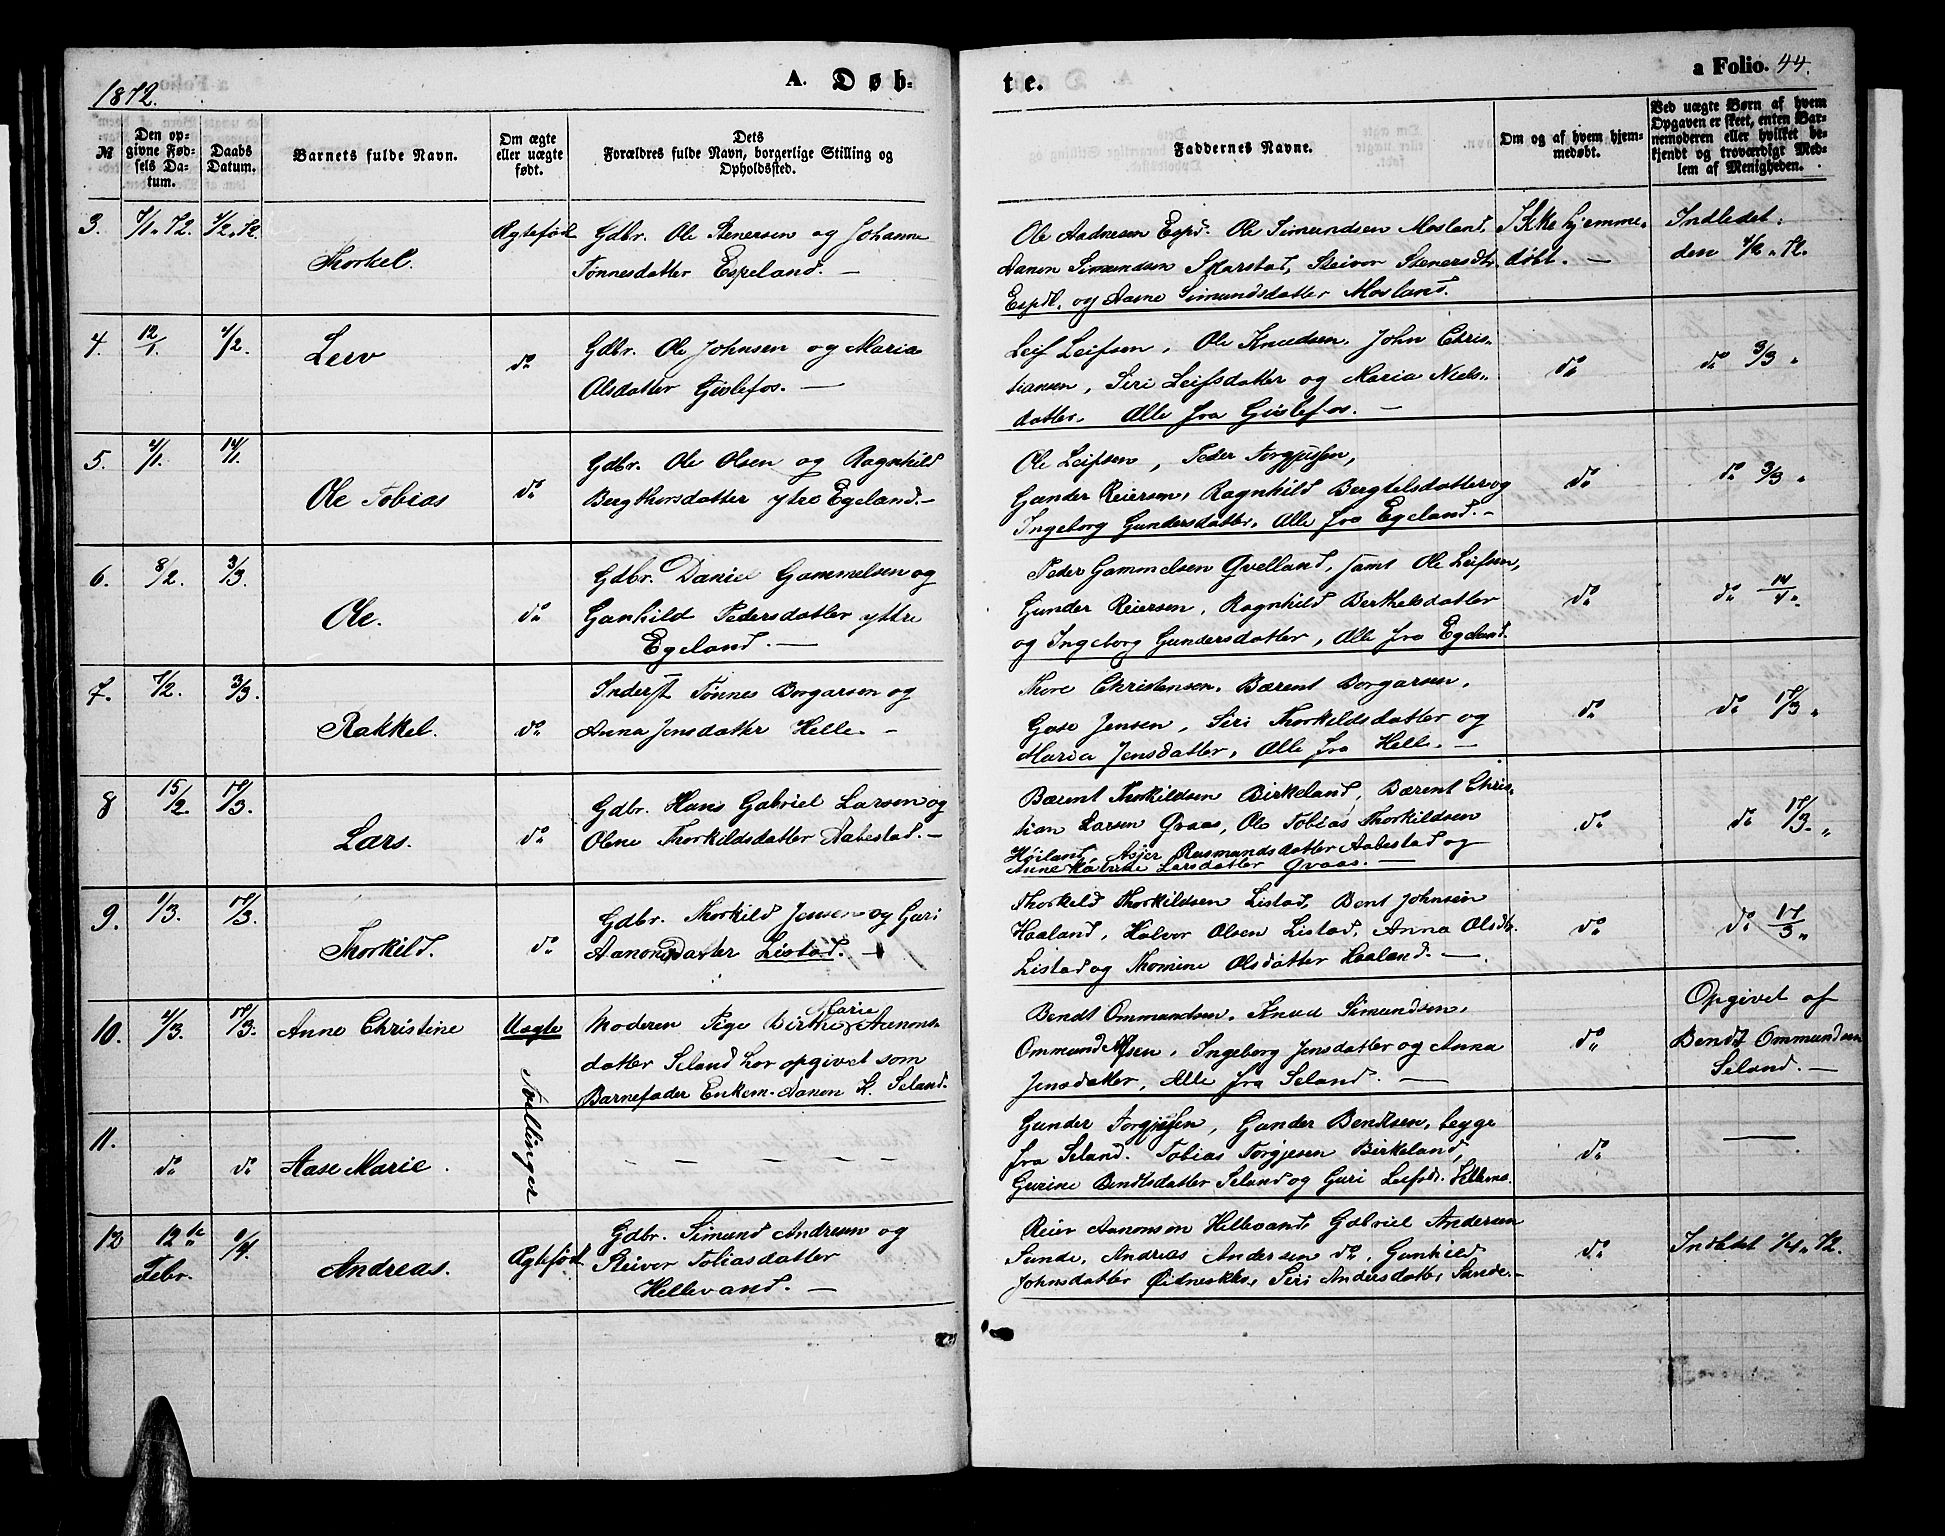 1872.
A. Døb-
te.
a Folio. 44.
№
Den op-
givne Fød-
sels Da-
tum.
Daabs
Datum.
Barnets fulde Navn.
Om ægte
eller uægte
født.
Dets
Forældres fulde Navn, borgerlige Stilling og
Opholdssted.
Faddernes Navne.
Om og af hvem hjem-
medøbt.
Ved uægte Børn af hvem
Opgaven er skeet, enten Bar-
nemoderen eller hvilket be-
kjendt og troværdigt Med-
lem af Menigheden.
3. 7/1. 72. 4/2. 72. Thorkel. Ægtefød
Gdbr. Ole Stenersen og Johanne
Tønnesdatter Espeland. —
Ole Aadnesen Espd. Ole Simundsen Mosland,
Aanon Simundsen Skarstad, Steivor Stenersdtr.
Espdl. og Aasne Simundsdatter Mosland.
Ikke hjemme-
døbt. —
Indledet
den 4/2. 72.
4. 12/1. 4/2. Lerv do
Gdbr. Ole Johnsen og Maria
Olsdatter Gislefos. —
Leif Leifsen, Ole Knudsen, John Chris-
tiansen, Siri Leifsdatter og Maria Niels-
datter. Alle fra Gislefos. —
do
do 3/3.
5. 4/1. 14/1. Ole Tobias do
Gdbr. Ole Olsen og Ragnhild
Bergthorsdatter ytre Egeland. —
Ole Leifsen, Peder Torgjusen,
Gunder Reiersen, Ragnhild Bergtelsdatter og
Ingeborg Gundersdatter. Alle fra Egeland. —
do
do 3/3.
6. 8/2. 3/3. Ole. do
Gdbr. Daniel Gammelsen og
Gunhild Pedersdatter yttre
Egeland. —
Peder Gammelsen Qvelland, samt Ole Leifsen,
Gunder Reiersen, Ragnhild Berthelsdatter
og Ingeborg Gundersdatter, Alle fra Egeland.
do
do 14/4.
7. 7/2. 3/3. Rakkel. do
Inderst Tønnes Borgarsen og
Anna Jensdatter Helle. —
Thore Christensen, Bærent Borgarsen,
Gose Jensen, Siri Thorkildsdatter og
Maria Jensdatter, Alle fra Helle. —
do
do 17/3.
8 15/2. 17/3. Lars. do
Gdbr. Hans Gabriel Larsen og
Olene Thorkildsdatter Aabestad. —
Bærent Thorkildsen Birkeland, Bærent Chris-
tian Larsen Qvaas, Ole Tobias Thorkildsen
Høiland, Asjer Rasmundsdatter Aabestad og
Anne Larsdatter Qvaas. —
do
do 17/3.
9. 1/3. 17/3. Thorkild. do
Gdbr. Thorkild Jensen og Guri
Aanonsdatter Listad. —
Thorkeld Thorkildsen Listad, Bent Johnsen
Haaland, Halvor Olsen Listad, Anna Olsdtr.
Listad og Thomine Olsdatter Haaland. —
do
do 17/3.
10. 4/3. 17/3. Anne Christine Uægte
Tvillinger
Moderen Pige Birthe Marie Aanons-
datter Seland har opgivet som
Barnefader Enkem. Aanon K. Seland.
Bendt Ommundsen, Knud Simundsen,
Ommund Alfsen, Ingeborg Jensdatter og Anna
Jensdatter, Alle fra Seland. —
do
Opgivet af
Bendt Ommundsen
Seland. —
11. do do Aase Marie.
— — — — —
Gunder Torgjusen, Gunder Bendtsen, begge
fra Seland. Tobias Torgjesen Birkeland,
Gurine Bendtsdatter Seland og Guri Leifsdr.
do
—
12 12te
Febr. 1/4. Andreas. Ægtefød
Gdbr. Simund Andresen og
Steivor Tobiasdatter
Hellevand. —
Reier Aanonsen Hellevand, Gabriel Andersen
Sunde, Andreas Andersen do, Gunhild
Johnsdatter Siri Andersdatter Sunde. —
do
Indledet 1/4. 72.